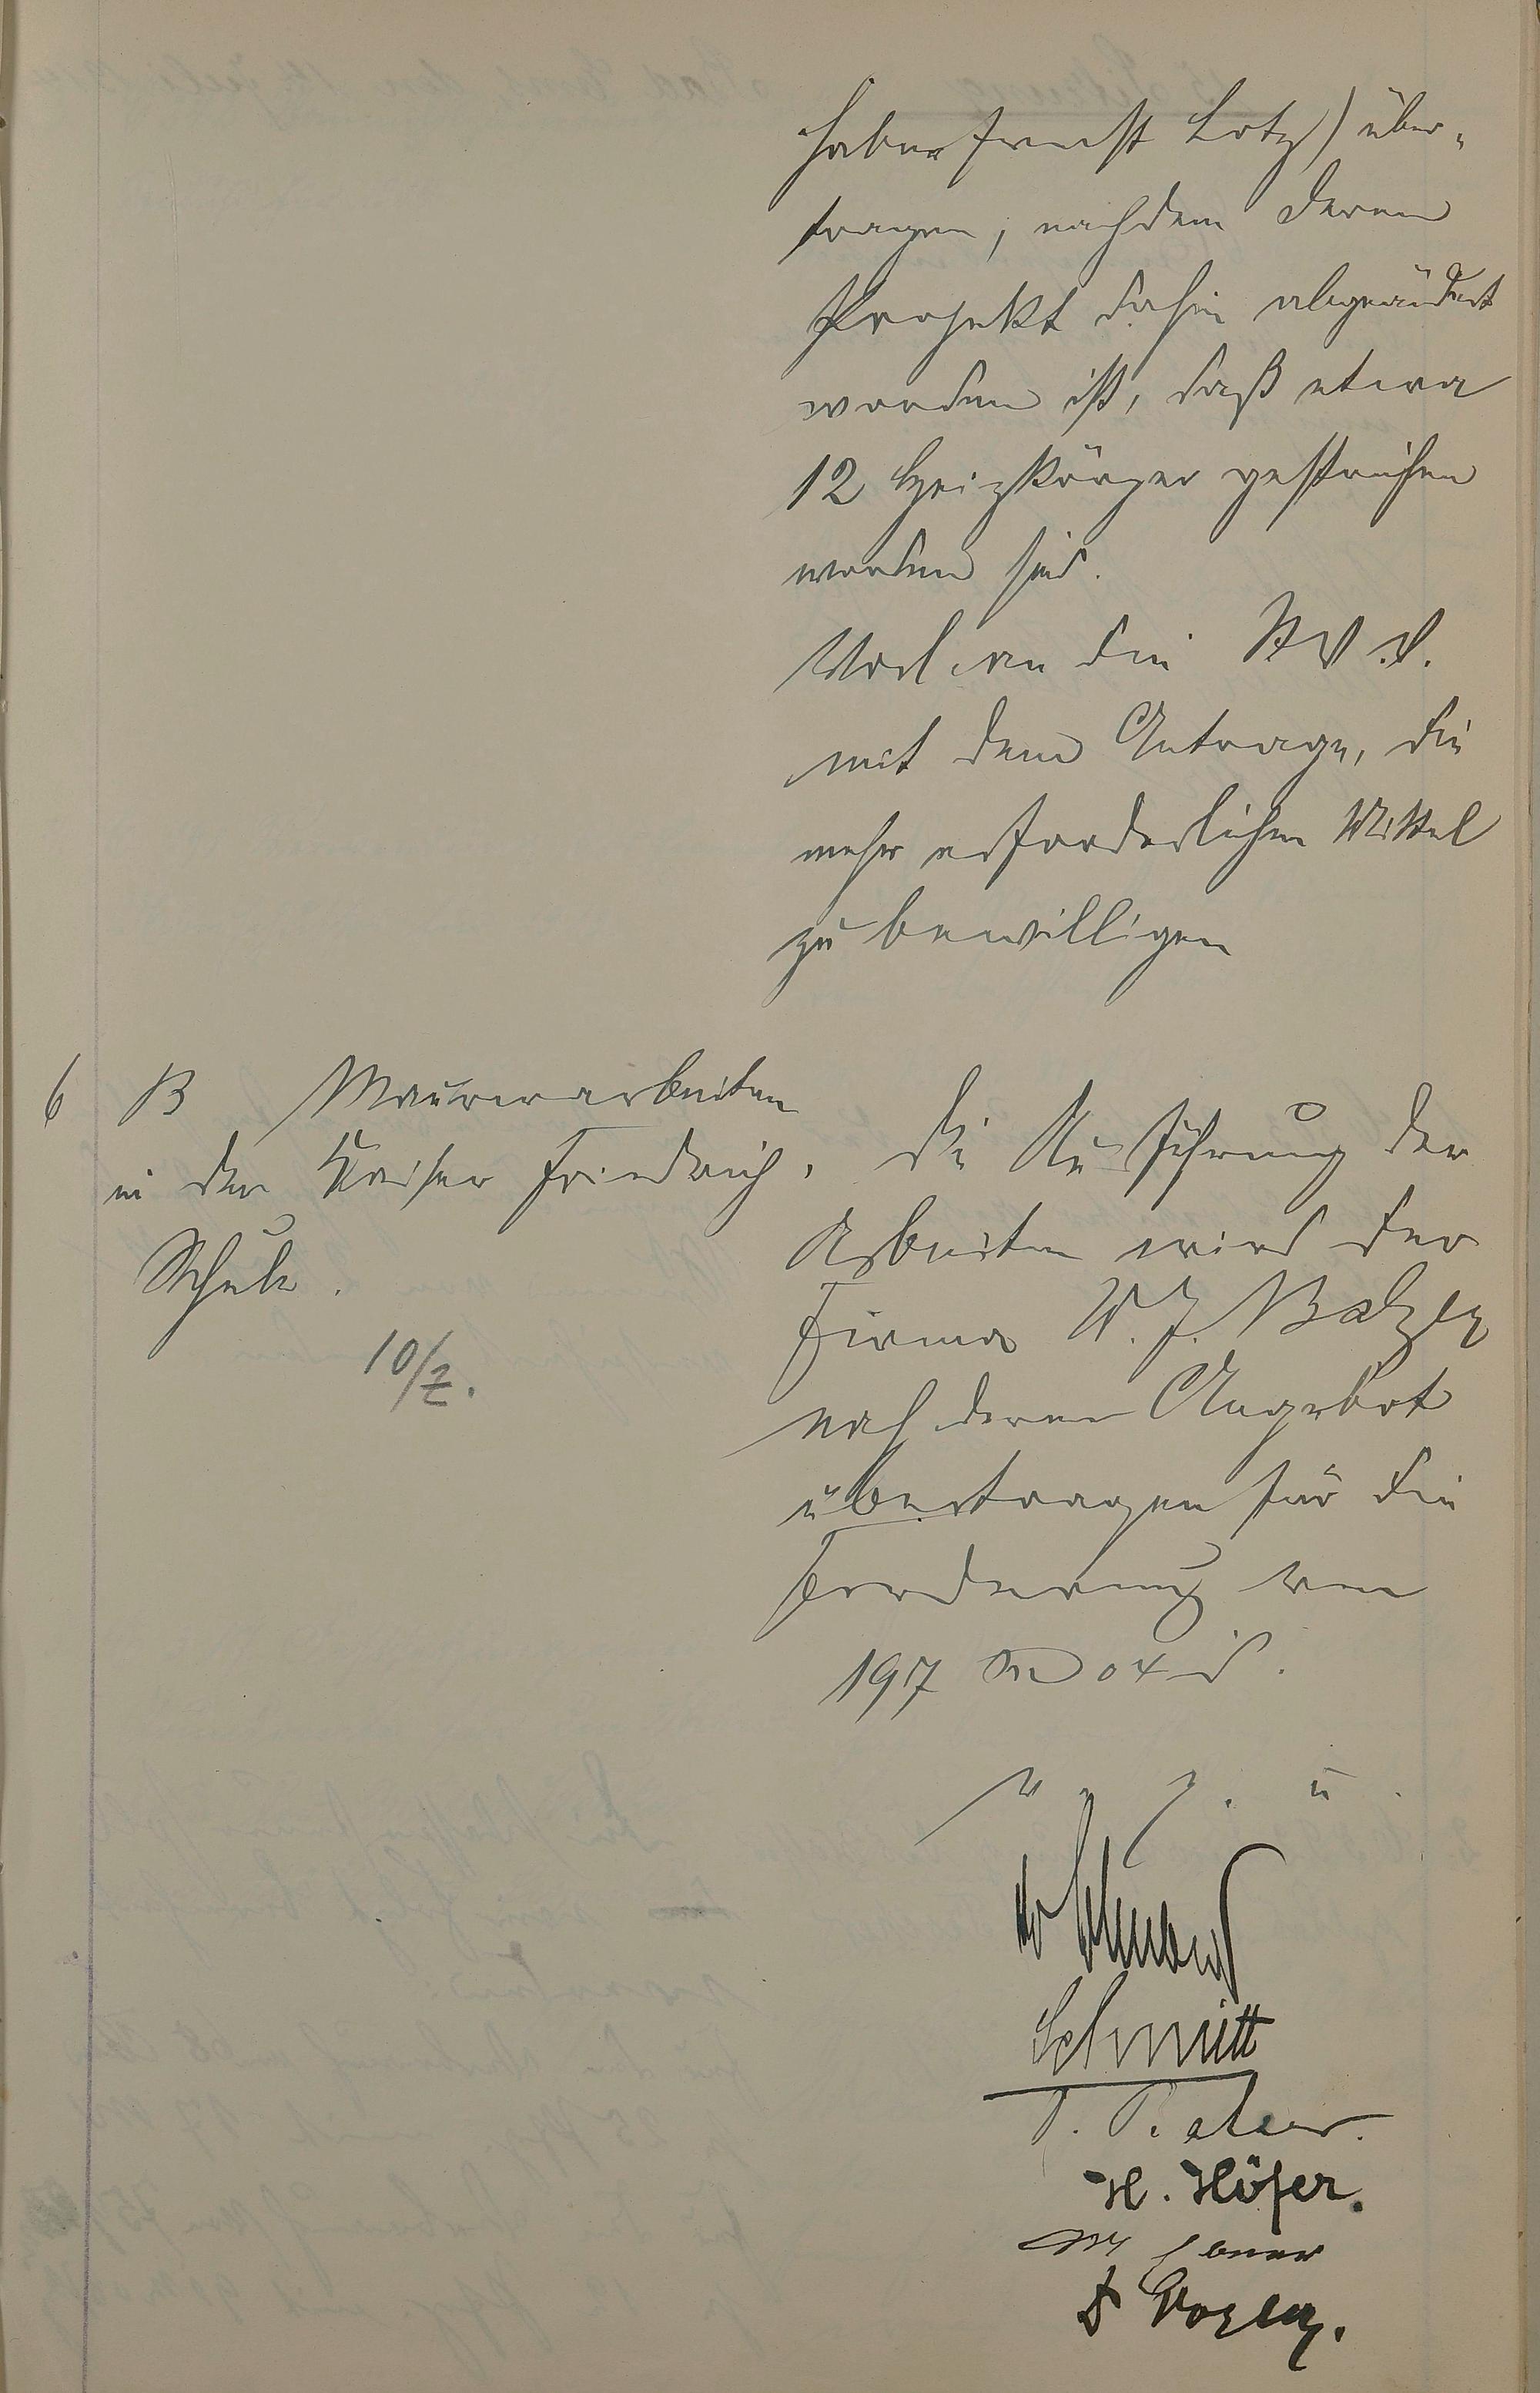 haber Ernst Lotz) über-
tragen, nachdem deren
Projekt dahin abgeändert
worden ist, daß etwa
12 Heizkörper gestrichen
worden sind.
Vorl. an die St.V.V.
mit dem Antrage, die
mehr erforderlichen Mittel
zu bewilligen
6 B Maurerarbeiten
in der Kaiser Friedrich-
Schule.
10/7.
Die Ausführung der
Arbeiten wird der
Firma W. J. Balzer
nach deren Angebot
übertragen für die
Forderung von
197 M 04 d.
v. g. u.
Schmitt
H. Höfer.
Vogler.